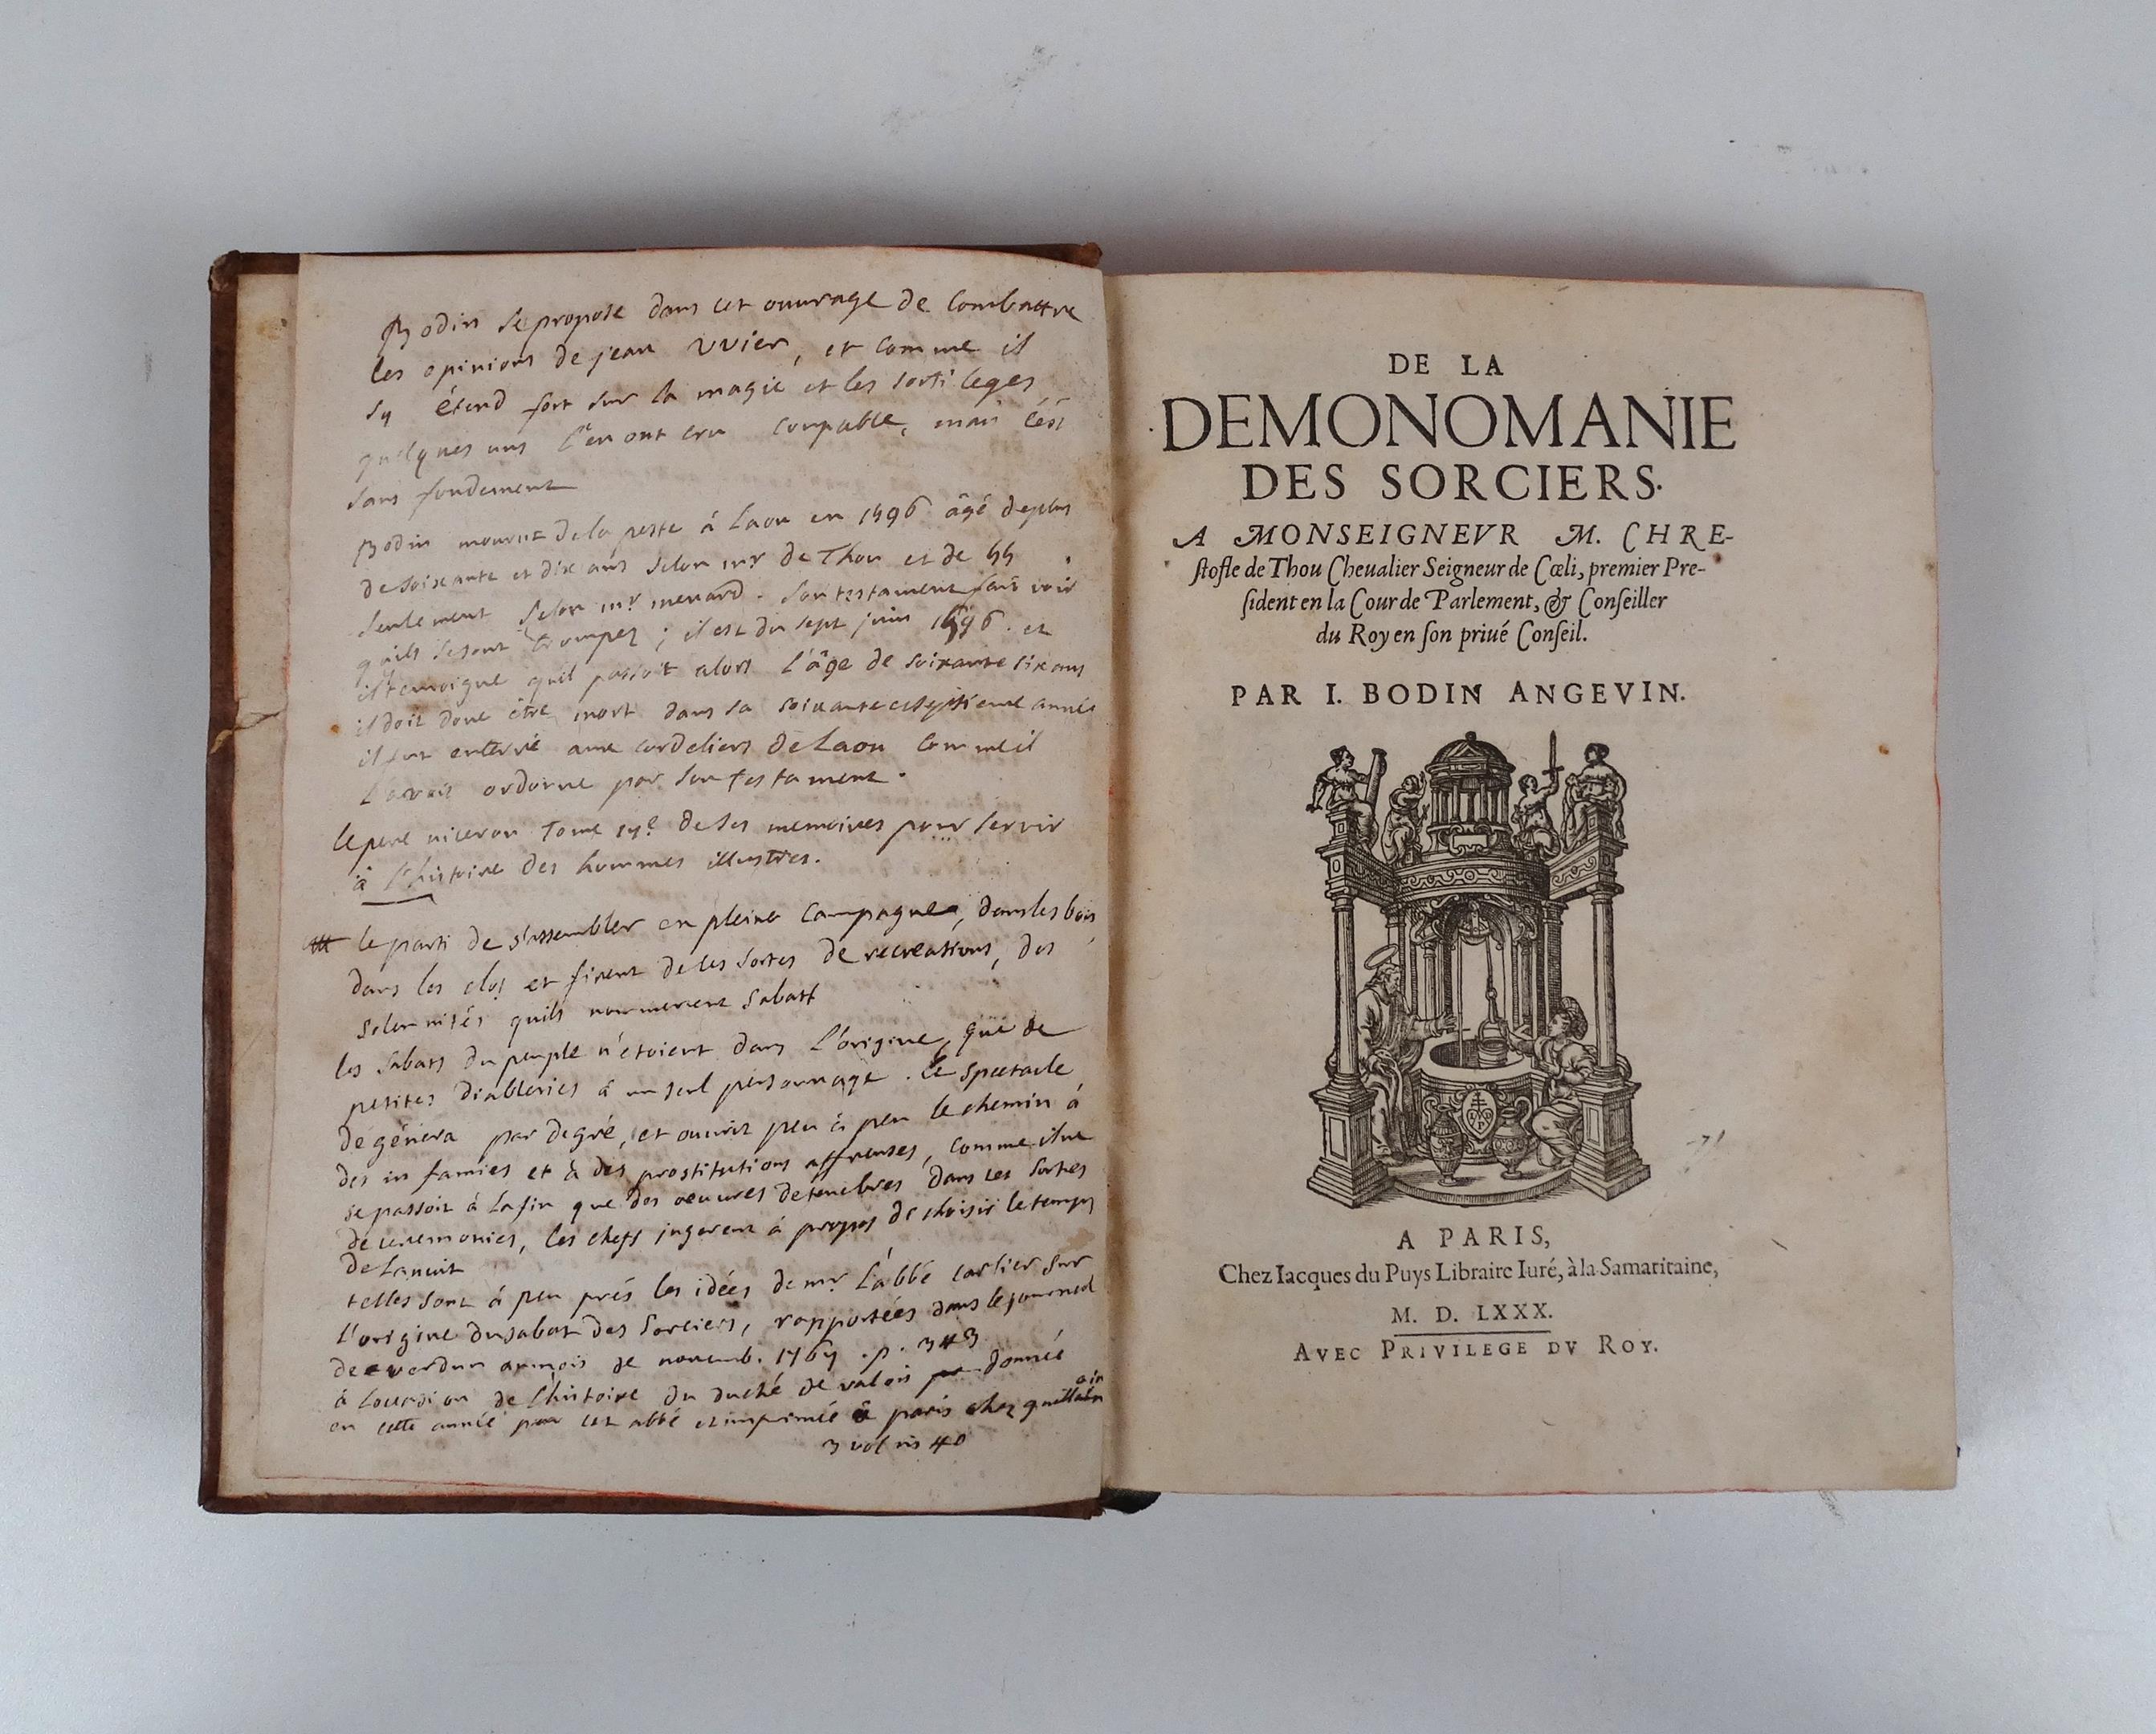 Bodin se propose dans cet ouvrage de Combattre
les opinions de jean vvier, et comme il
sy étend fort sur la magie et les sortileges
quelques uns l'en ont cru coupable, mais c'est
sans fondement
Bodin mourut de la peste á Laon en 1596 âgé de plus
de soixante et dix ans selon mr de Thou et de 55
seulement selon mr menard. son testament fait voir
quils se sont trompez ; il est du sept juin 1596. et
il temoigne quil passoit alors l'âge de soixante six ans
il doit donc être mort dans sa soixante et septieme année
il fut enterré aux cordeliers de Laon comme il
l'avait ordonné par son testament.
le pere niceron Tome 17e de ses memoires pour servir
à l'histoire des hommes illustres.
le parti de s'assembler en pleine Campagne, dans les bois,
dans les clos et firent de ces sortes de recreations, des
solemnités quils nommerent sabatt
les sabats du peuple n'etoient dans l'origine, que de
petites diableries á un seul personnage. Ce spectacle
dégénera par degré, et ouvrit peu á peu le chemin á
des infamies et à des prostitutions affreuses, comme il ne
se passoit á la fin que des oeuvres de tenebres dans ces sortes
de ceremonies, les chefs jugerent á propos de choisir le temps
de la nuit
telles sont á peu prés les idées de mr. L'abbé carlier sur
l'origine du sabat des sorciers, rapportées dans le journal
de verdun au mois de novemb. 1764 .p. 343
à l'occasion de l'histoire du duché de valois donnée
en cette année par cet abbé et imprimée à paris chez guillain
3 vol in 4o
DE LA
DEMONOMANIE
DES SORCIERS.
A MONSEIGNEVR M. CHRE-
stofle de Thou Cheualier Seigneur de Cœli, premier Pre-
sident en la Cour de Parlement, & Conseiller
du Roy en son priué Conseil.
PAR I. BODIN ANGEVIN.
A PARIS,
Chez Iacques du Puys Libraire Iuré, à la Samaritaine,
M. D. LXXX.
AVEC PRIVILEGE DV ROY.